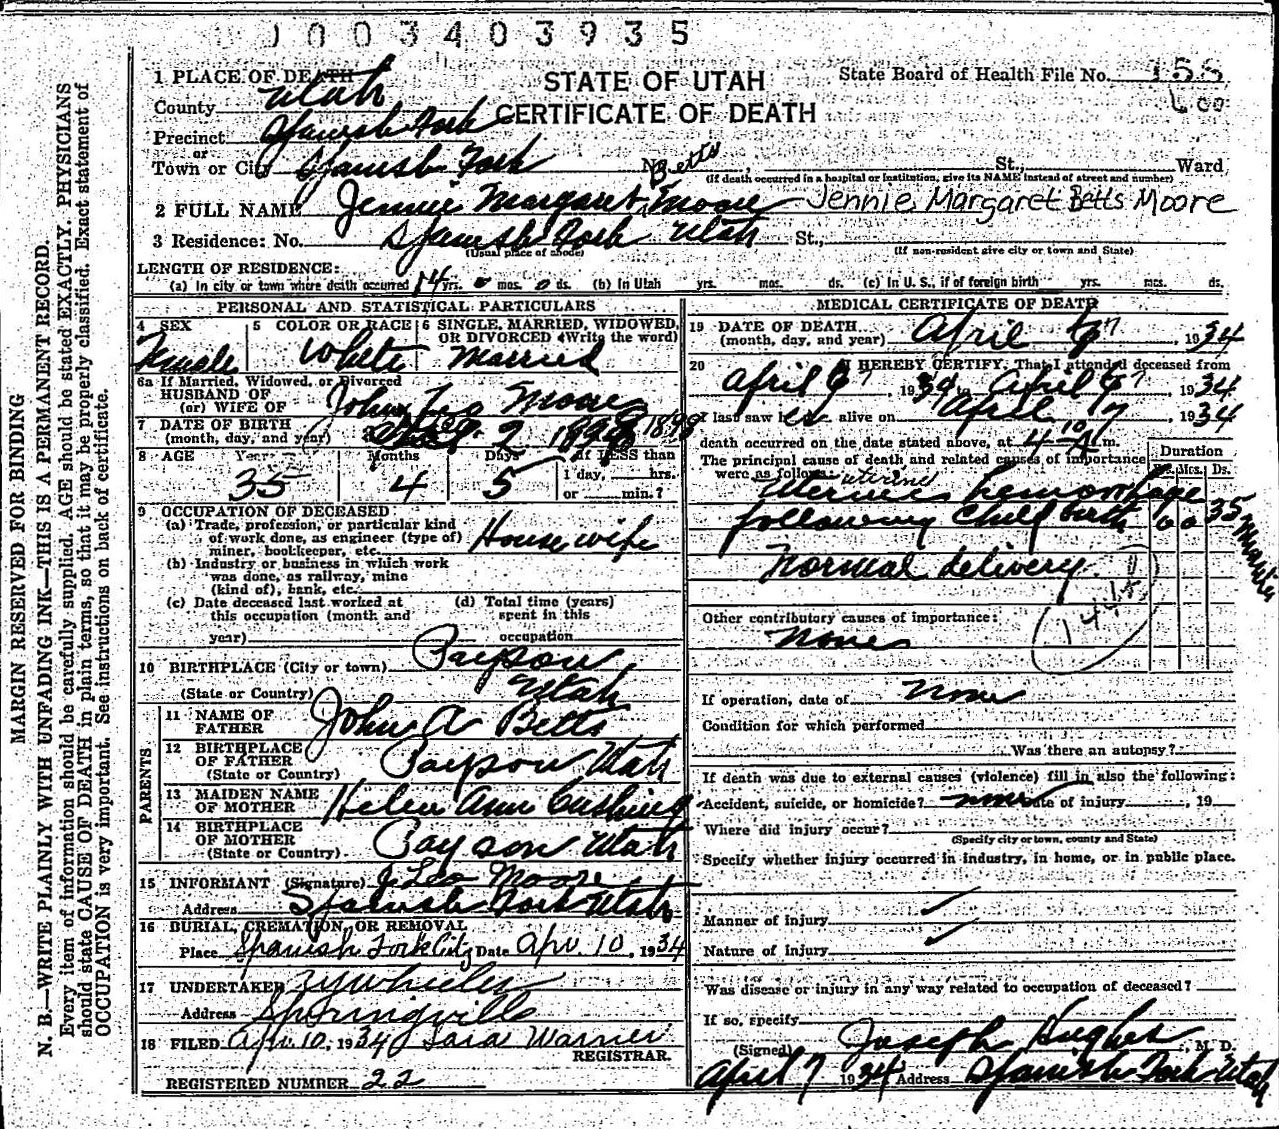 1003403935
STATE OF UTAH
CERTIFICATE OF DEATH
State Board of Health File No. 158
600
MARGIN RESERVED FOR BINDING
N. B.—WRITE PLAINLY WITH UNFADING INK—THIS IS A PERMANENT RECORD.
Every item of information should be carefully supplied. AGE should be stated EXACTLY. PHYSICIANS
should state CAUSE OF DEATH in plain terms, so that it may be properly classified. Exact statement of
OCCUPATION is very important. See instructions on back of certificate.
1 PLACE OF DEATH
County Utah
Precinct Spanish Fork
or
Town or City Spanish Fork No. St., Ward
(If death occurred in a hospital or institution, give its NAME instead of street and number)
Betts
2 FULL NAME Jennie Margaret Moore Jennie Margaret Betts Moore
3 Residence: No. Spanish Fork Utah St.,
(Usual place of abode) (If non-resident give city or town and State)
LENGTH OF RESIDENCE:
(a) In city or town where death occurred 14 yrs. 0 mos. 0 ds. (b) In Utah yrs. mos. ds. (c) In U. S., if of foreign birth yrs. mos. ds.
PERSONAL AND STATISTICAL PARTICULARS
4 SEX Female
5 COLOR OR RACE White
6 SINGLE, MARRIED, WIDOWED,
OR DIVORCED (Write the word)
Married
6a If Married, Widowed, or Divorced
HUSBAND OF
(or) WIFE OF John Leo Moore
7 DATE OF BIRTH
(month, day, and year) Dec. 2 1898 1898
8 AGE Years Months Days If LESS than
35 4 5 1 day, hrs.
or min.?
9 OCCUPATION OF DECEASED:
(a) Trade, profession, or particular kind
of work done, as engineer (type of)
miner, bookkeeper, etc. Housewife
(b) Industry or business in which work
was done, as railway, mine
(kind of), bank, etc.
(c) Date deceased last worked at
this occupation (month and
year)
(d) Total time (years)
spent in this
occupation
10 BIRTHPLACE (City or town) Payson
(State or Country) Utah
PARENTS
11 NAME OF
FATHER John A Betts
12 BIRTHPLACE
OF FATHER
(State or Country) Payson Utah
13 MAIDEN NAME
OF MOTHER Helen Ann Cushing
14 BIRTHPLACE
OF MOTHER
(State or Country) Payson Utah
15 INFORMANT (Signature) J Leo Moore
Address Spanish Fork Utah
16 BURIAL, CREMATION, OR REMOVAL
Place Spanish Fork City Date Apr. 10, 1934
17 UNDERTAKER Wheeler
Address Springville
18 FILED Apr. 10, 1934 Sara Warner
REGISTRAR.
REGISTERED NUMBER 22
MEDICAL CERTIFICATE OF DEATH
19 DATE OF DEATH
(month, day, and year) April 7, 1934
20 I HEREBY CERTIFY, That I attended deceased from
April 7, 1934 to April 7, 1934
I last saw her alive on April 7, 1934
death occurred on the date stated above, at 4 10 A.m.
The principal cause of death and related causes of importance
were as follows:
Duration
Yrs. Mos. Ds.
uterine
Uterine hemorrhage
following child birth 0 0 35 minutes
Normal delivery.
Other contributory causes of importance:
None
If operation, date of None
Condition for which performed
Was there an autopsy?
If death was due to external causes (violence) fill in also the following:
Accident, suicide, or homicide? None Date of injury , 19
Where did injury occur?
(Specify city or town, county and State)
Specify whether injury occurred in industry, in home, or in public place.
Manner of injury
Nature of injury
Was disease or injury in any way related to occupation of deceased?
If so, specify
(Signed) Joseph Hughes, M. D.
April 7 1934 Address Spanish Fork Utah